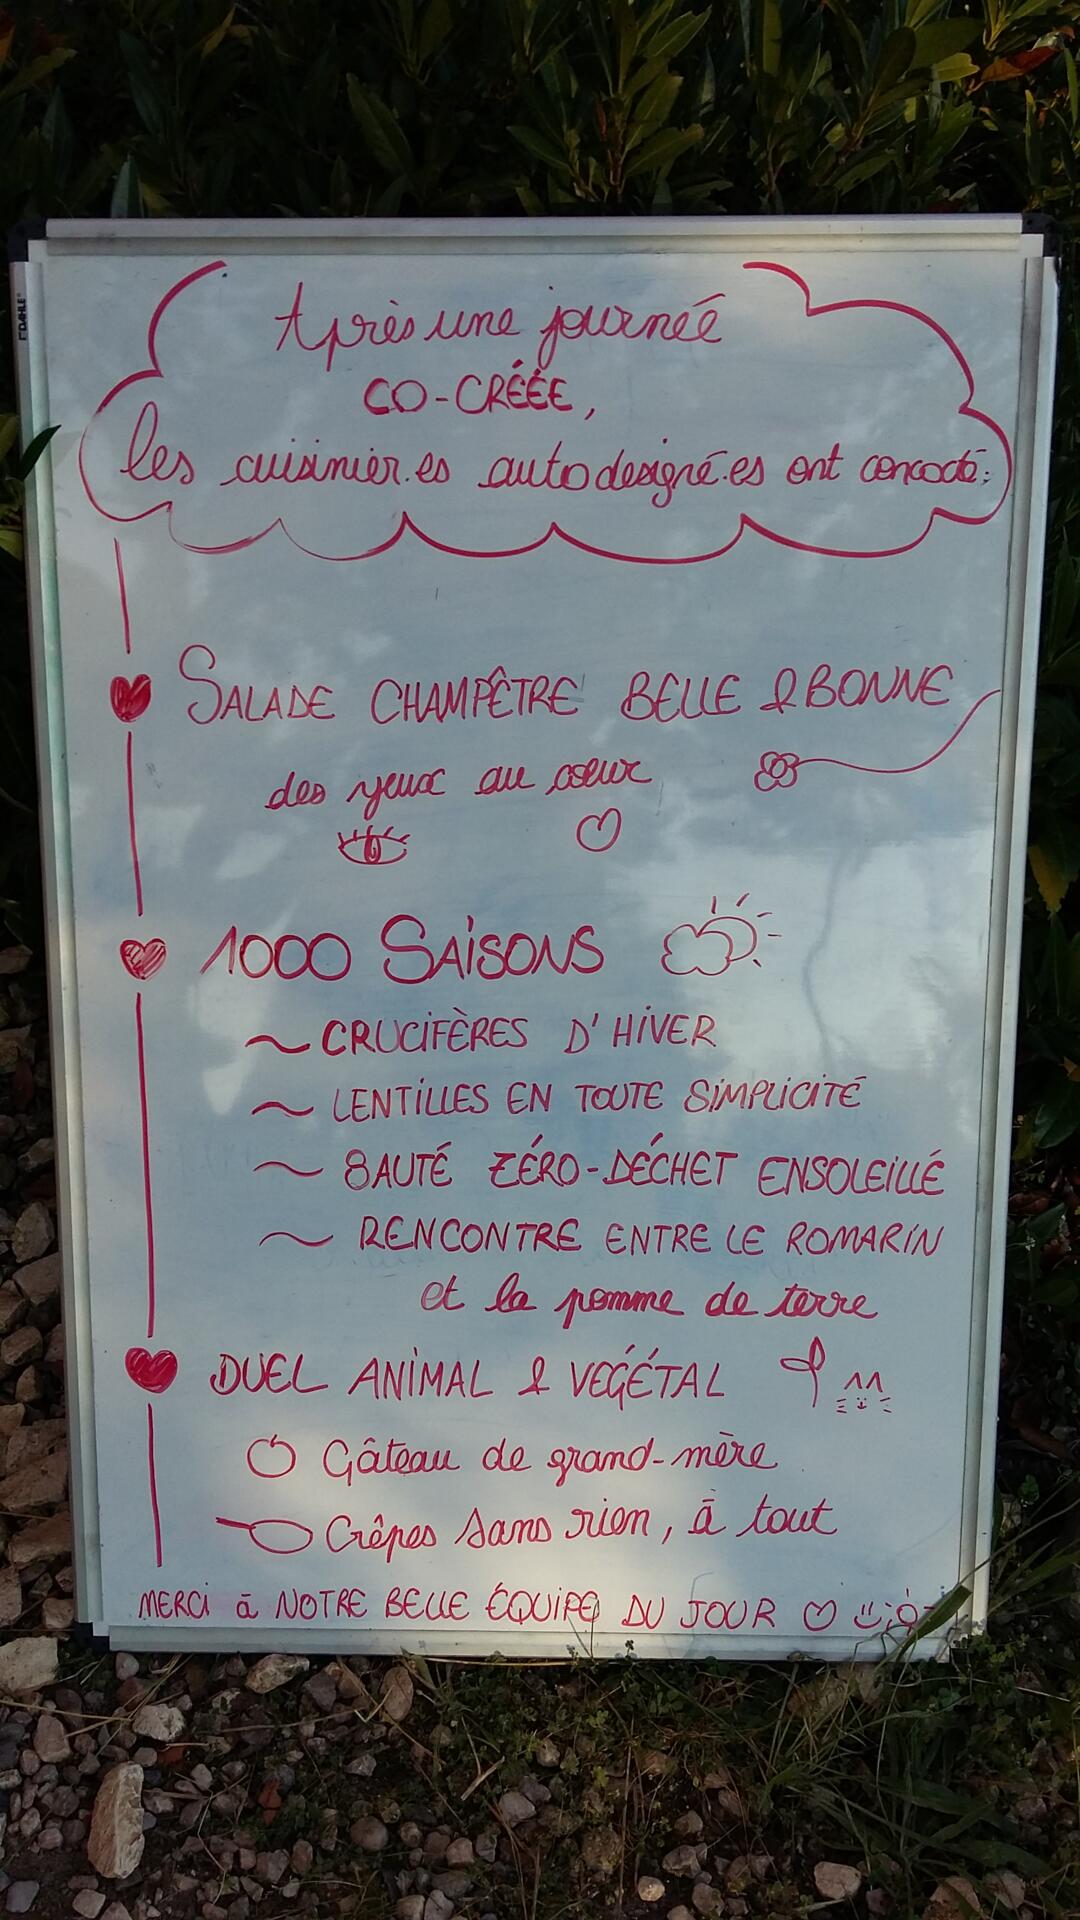 Après une journée
CO-CRÉÉE,
les cuisinier.es autodesigné.es ont concocté:
SALADE CHAMPÊTRE BELLE & BONNE
des yeux au coeur
1000 SAISONS
~ CRUCIFÈRES D'HIVER
~ LENTILLES EN TOUTE SIMPLICITÉ
~ SAUTÉ ZÉRO-DÉCHET ENSOLEILLÉ
~ RENCONTRE ENTRE LE ROMARIN
et la pomme de terre
DUEL ANIMAL & VEGÉTAL
Gâteau de grand-mère
Crêpes sans rien, à tout
MERCI à NOTRE BELLE ÉQUIPE DU JOUR
DAHLE